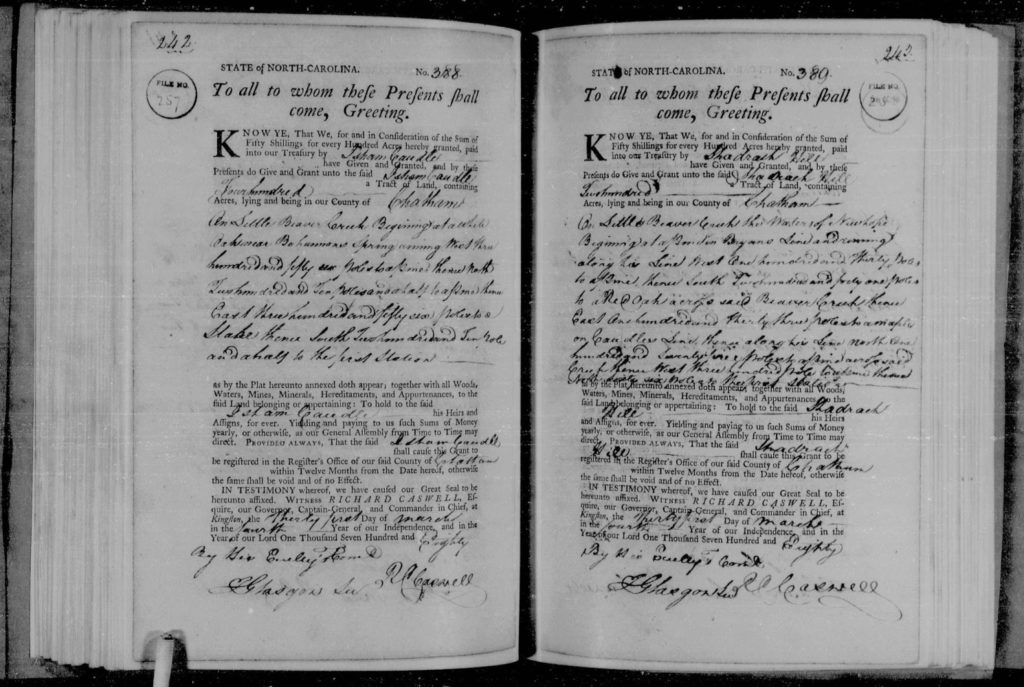 242
STATE of NORTH-CAROLINA. No. 388
FILE NO.
257
To all to whom theſe Preſents ſhall
come, Greeting.
KNOW YE, That We, for and in Conſideration of the Sum of
Fifty Shillings for every Hundred Acres hereby granted, paid
into our Treaſury by Isham Caudle
have Given and Granted, and by theſe
Preſents do Give and Grant unto the ſaid Isham Caudle
a Tract of Land, containing
Four hundred
Acres, lying and being in our County of Chatham
On Little Beaver Creek Begining at a white
Oak near Bohannons Spring runing West three
hundred and fifty six poles to a pine thence North
Two hundred and Ten poles and a half to a pine thence
East three hundred and fifty six poles to a
Stake thence South Two hundred and Ten Poles
and a half to the first Station
as by the Plat hereunto annexed doth appear; together with all Woods,
Waters, Mines, Minerals, Hereditaments, and Appurtenances, to the
ſaid Land belonging or appertaining: To hold to the ſaid
Isham Caudle his Heirs and
Aſſigns, for ever. Yielding and paying to us ſuch Sums of Money
yearly, or otherwiſe, as our General Aſſembly from Time to Time may
direct. PROVIDED ALWAYS, That the ſaid Isham Caudle
ſhall cauſe this Grant to
be regiſtered in the Regiſter's Office of our ſaid County of Chatham
within Twelve Months from the Date hereof, otherwiſe
the ſame ſhall be void and of no Effect.
IN TESTIMONY whereof, we have cauſed our Great Seal to be
hereunto affixed. WITNESS RICHARD CASWELL, Eſ-
quire, our Governor, Captain-General, and Commander in Chief, at
Kingſton, the thirty first Day of March
in the fourth Year of our Independence, and in the
Year of our Lord One Thouſand Seven Hundred and Eighty
By His Exclly's Comd
J Glasgow Sec. Rd Caswell
243
STATE of NORTH-CAROLINA. No. 389
FILE NO.
To all to whom theſe Preſents ſhall
come, Greeting.
KNOW YE, That We, for and in Conſideration of the Sum of
Fifty Shillings for every Hundred Acres hereby granted, paid
into our Treaſury by Shadrach Hill
have Given and Granted, and by theſe
Preſents do Give and Grant unto the ſaid Shadrach Hill
a Tract of Land, containing
Two hundred
Acres, lying and being in our County of Chatham
On Little Beaver Creek the Waters of Newhope
Begining at a pine in Bryans Line and runing
along his Line West One hundred and thirty Poles
to a Pine, thence South Two hundred and forty one Poles
to a Red Oak across said Beaver Creek thence
East One hundred and thirty three poles to a maple
on Caudles Line, thence along his Line North One
hundred and Twenty five poles to a pine across said
Creek thence West three hundred poles to a pine thence
North sixty six Poles to the first station
as by the Plat hereunto annexed doth appear; together with all Woods,
Waters, Mines, Minerals, Hereditaments, and Appurtenances, to the
ſaid Land belonging or appertaining: To hold to the ſaid Shadrach
Hill his Heirs
and Aſſigns, for ever. Yielding and paying to us ſuch Sums of Money
yearly, or otherwiſe, as our General Aſſembly from Time to Time may
direct. PROVIDED ALWAYS, That the ſaid Shadrach
Hill ſhall cauſe this Grant to be
regiſtered in the Regiſter's Office of our ſaid County of Chatham
within Twelve Months from the Date hereof, otherwiſe
the ſame ſhall be void and of no Effect.
IN TESTIMONY whereof, we have cauſed our Great Seal to be
hereunto affixed. WITNESS RICHARD CASWELL, Eſ-
quire, our Governor, Captain-General, and Commander in Chief, at
Kingſton, the thirty first Day of March
in the fourth Year of our Independence, and in the
Year of our Lord One Thouſand Seven Hundred and Eighty
By His Exclly's Comd.
J Glasgow Sec Rd Caswell